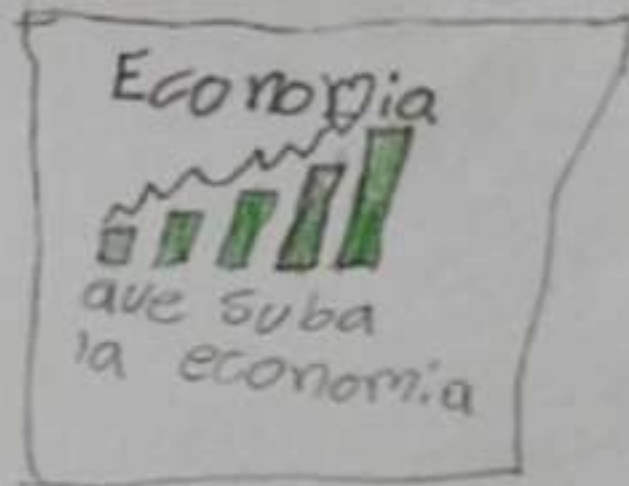 Economia
que suba
la economia